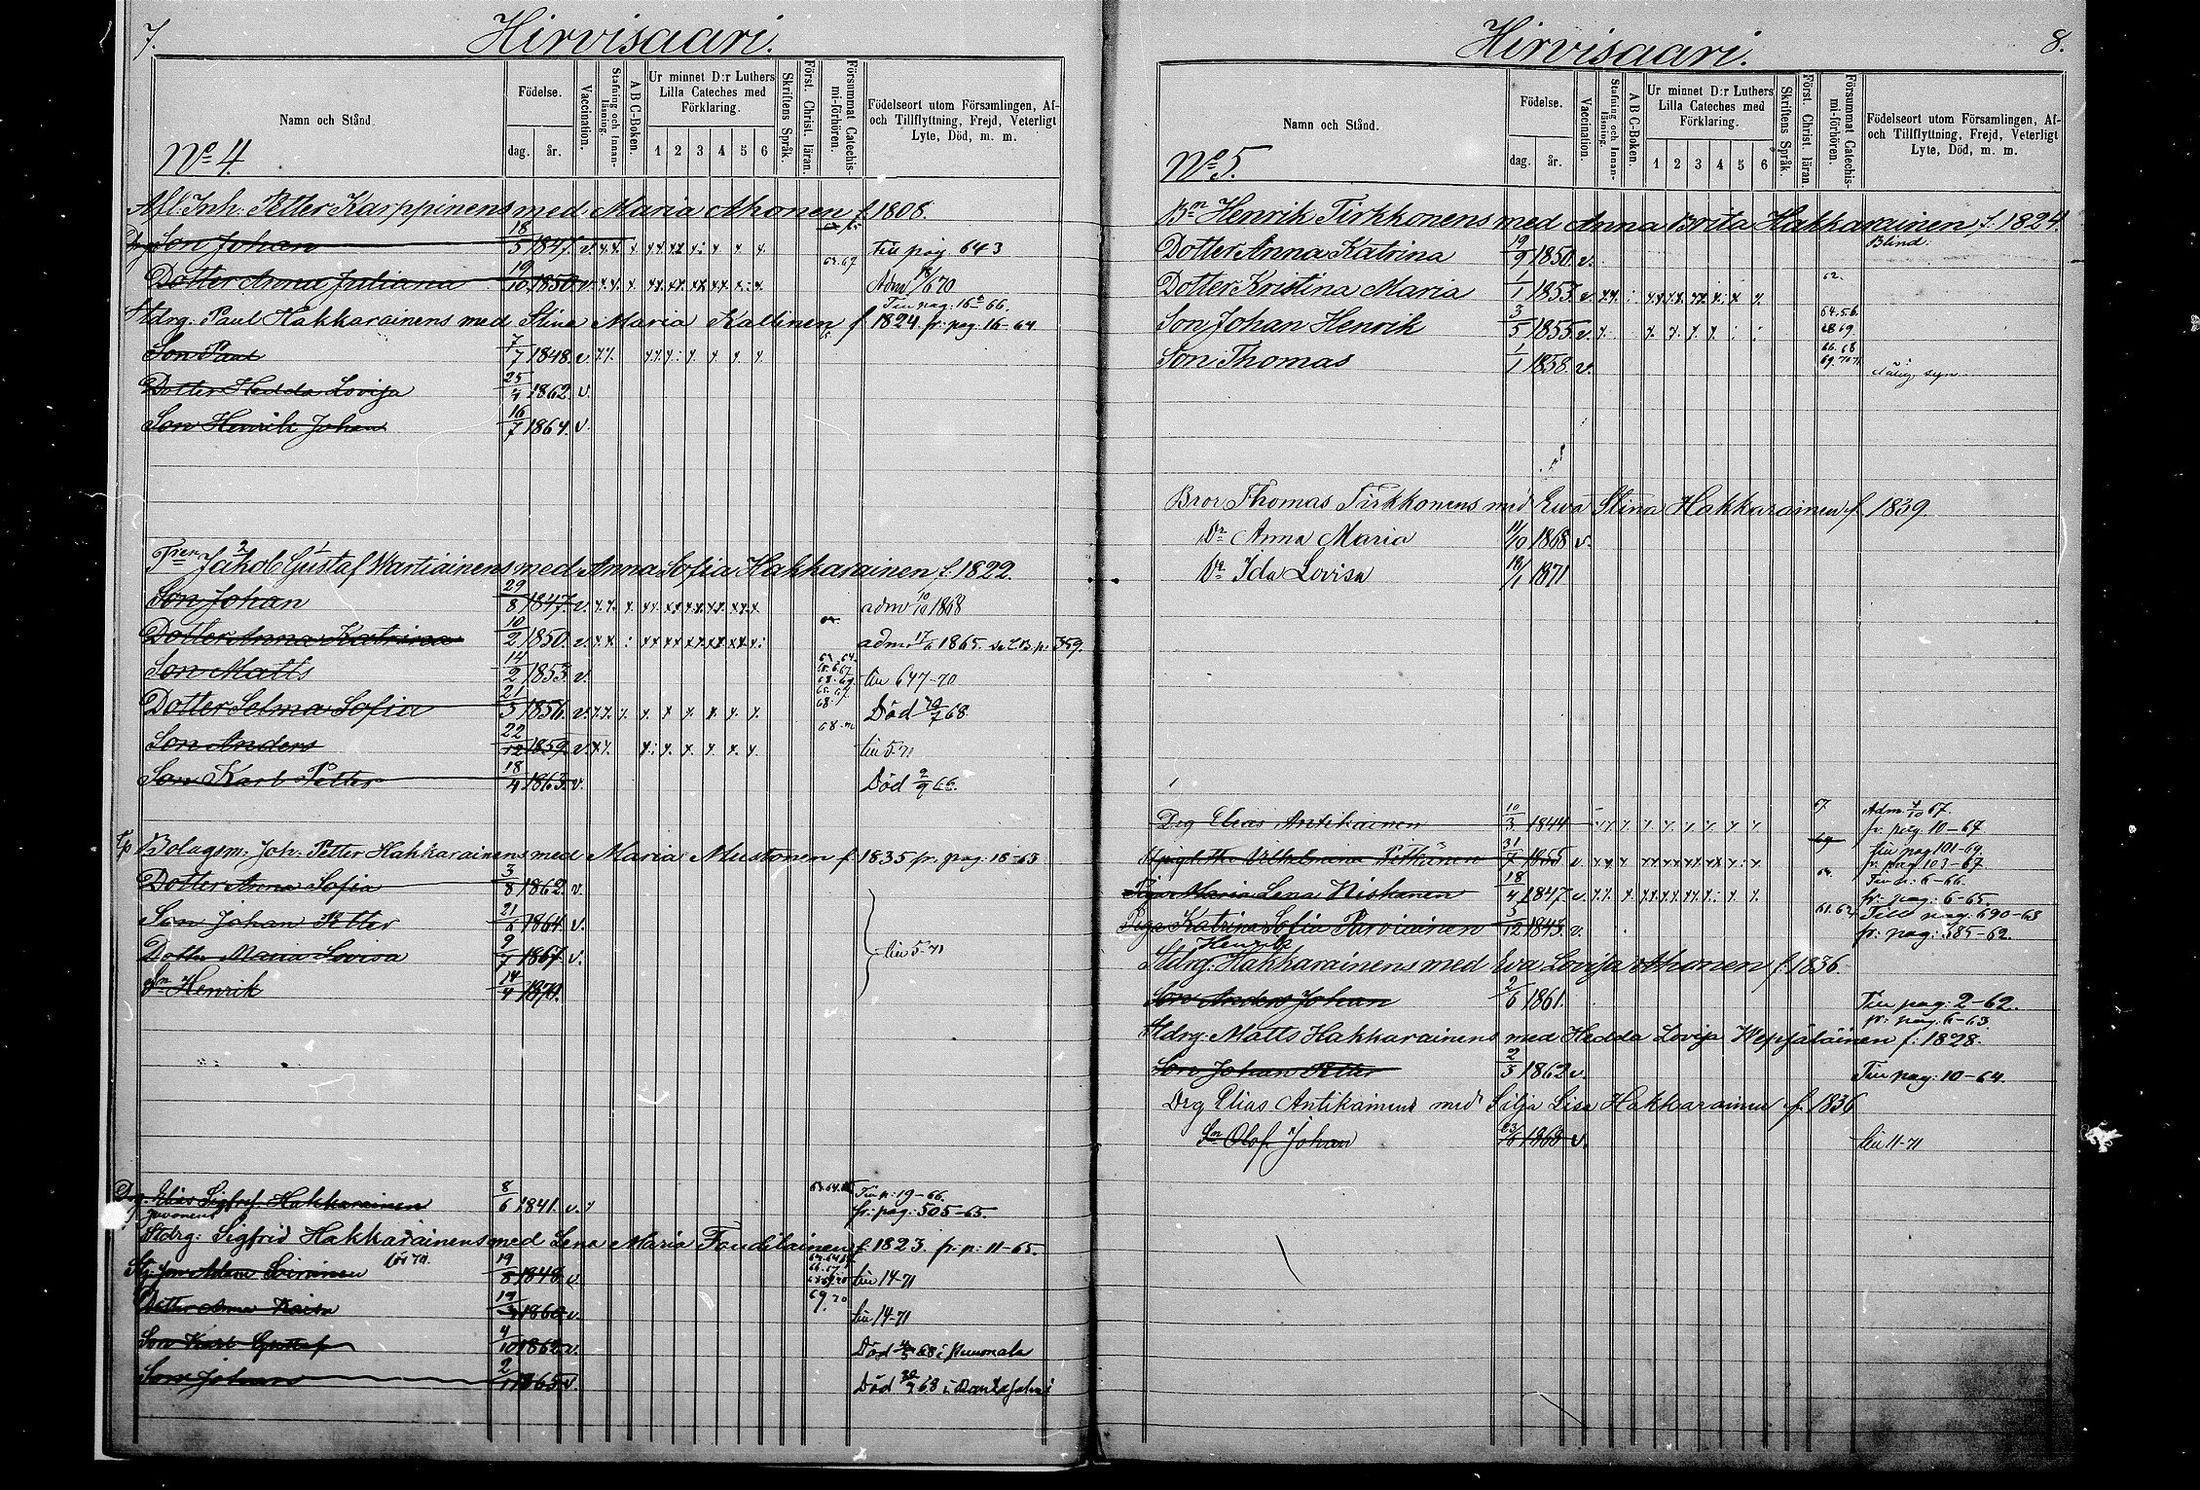 7.
Hirvisaari.
Namn och Stånd.
Födelse.
dag.
år.
Vaccination.
Stafning och Innan-
läsning.
A B C-Boken.
Ur minnet D:r Luthers
Lilla Cateches med
Förklaring.
1 2 3 4 5 6
Skriftens Språk.
Först. Christ. läran.
Försummat Catechis-
mi-förhören.
Födelseort utom Församlingen, Af-
och Tillflyttning, Frejd, Veterligt
Lyte, Död, m. m.
No 4.
Afl. Inh. Petter Karppinens med Maria Ahonen f. 1808.
Son Johan 18/5 1847. v. Till pag 643
Dotter Anna Juliana 19/10 1850 v. 63.67
Till pag. 16-66.
Stdrg: Paul Hakkarainens med Stina Maria Kallinen f 1824 fr. pag. 16-64
Son Paul 7/7 1848 v.
Dotter Hedda Lovisa 25/4 1862 v.
Son Henrik Johan 16/7 1864. v.
Jakob Gustaf Wartiainens med Anna Sofia Hakkarainen f. 1822.
Son Johan 29/8 1847. v. adm 10/10 1868
Dotter Anna Katrina 10/2 1850. v. adm 17/6 1865. 359.
Son Matts 14/2 1853 v. till 647-70
Dotter Selma Sofia 21/5 1856. v. Död 68.
Son Anders 22/12 1859. v. till 5-71
Son Karl Petter 18/4 1863. v. Död 2/9 66.
Bolagsm: Joh: Petter Hakkarainens med Maria Mustonen f 1835 fr. pag. 18-63
Dotter Anna Sofia 3/8 1862. v.
Son Johan Petter 21/6 1864. v.
Dotter Maria Lovisa 1867. v. till 5-71
Sn Henrik 14/4 1870.
Drg. Elias Sigfrid Hakkarainen 8/6 1841. v. Till p: 19-66.
fr: pag: 505-65.
Stdrg: Sigfrid Hakkarainens med Lena Maria f. 1823. fr: p: 11-65.
Adam Soininen 19/8 1848. v. till 14-71
Dotter Anna Kaisa 1860 v. 69.70 till 14-71
Son Karl Gustaf 4/10 1862 v. Död 68 i
Son Johan 2/1 1865 v. Död 68 i Rantasalmi
8.
Hirvisaari.
Namn och Stånd.
Födelse.
dag.
år.
Vaccination.
Stafning och Innan-
läsning.
A B C-Boken.
Ur minnet D:r Luthers
Lilla Cateches med
Förklaring.
1 2 3 4 5 6
Skriftens Språk.
Först. Christ. läran.
Försummat Catechis-
mi-förhören.
Födelseort utom Församlingen, Af-
och Tillflyttning, Frejd, Veterligt
Lyte, Död, m. m.
No 5.
Bn Henrik Tirkkonens med Anna Brita Hakkarainen f. 1824.
Dotter Anna Katrina 19/9 1850. v. Blind.
Dotter Kristina Maria 1/1 1853. v. 62.
Son Johan Henrik 3/5 1855. v.
Son Thomas 1/1 1858. v. syn
Bror Thomas Tirkkonens med Ewa Stina Hakkarainen f. 1839
Dr Anna Maria 11/10 1868 v.
Dr Ida Lovisa 1871
Drg Elias Antikainen 10/3 1844 67 Adm 67.
fr. pag. 10-67
Wilhelmina Pitkänen till pag 101-69.
fr. pag 103-67.
Piga Maria Lena Niskanen 18/4 1847 v. Till p: 6-66.
fr. pag: 6-65.
Piga Katrina Sofia Parviainen 5/12 1843. v. 61.62 Till pag: 690-63
fr: pag: 385-62.
Henrik
Stdrg: Hakkarainens med Eva Lovisa Ahonen f. 1836.
Son Anders Johan 2/6 1861. Till pag: 2-62.
fr: pag: 6-63.
Stdrg: Matts Hakkarainens med Hedda Lovisa Weps��läinen f: 1828.
Son Johan Petter 2/3 1862 v. Till pag: 10-64.
Drg Elias Antikainens med Silja Lisa Hakkarainen f. 1836
Sn Olof Johan v. till 11-71